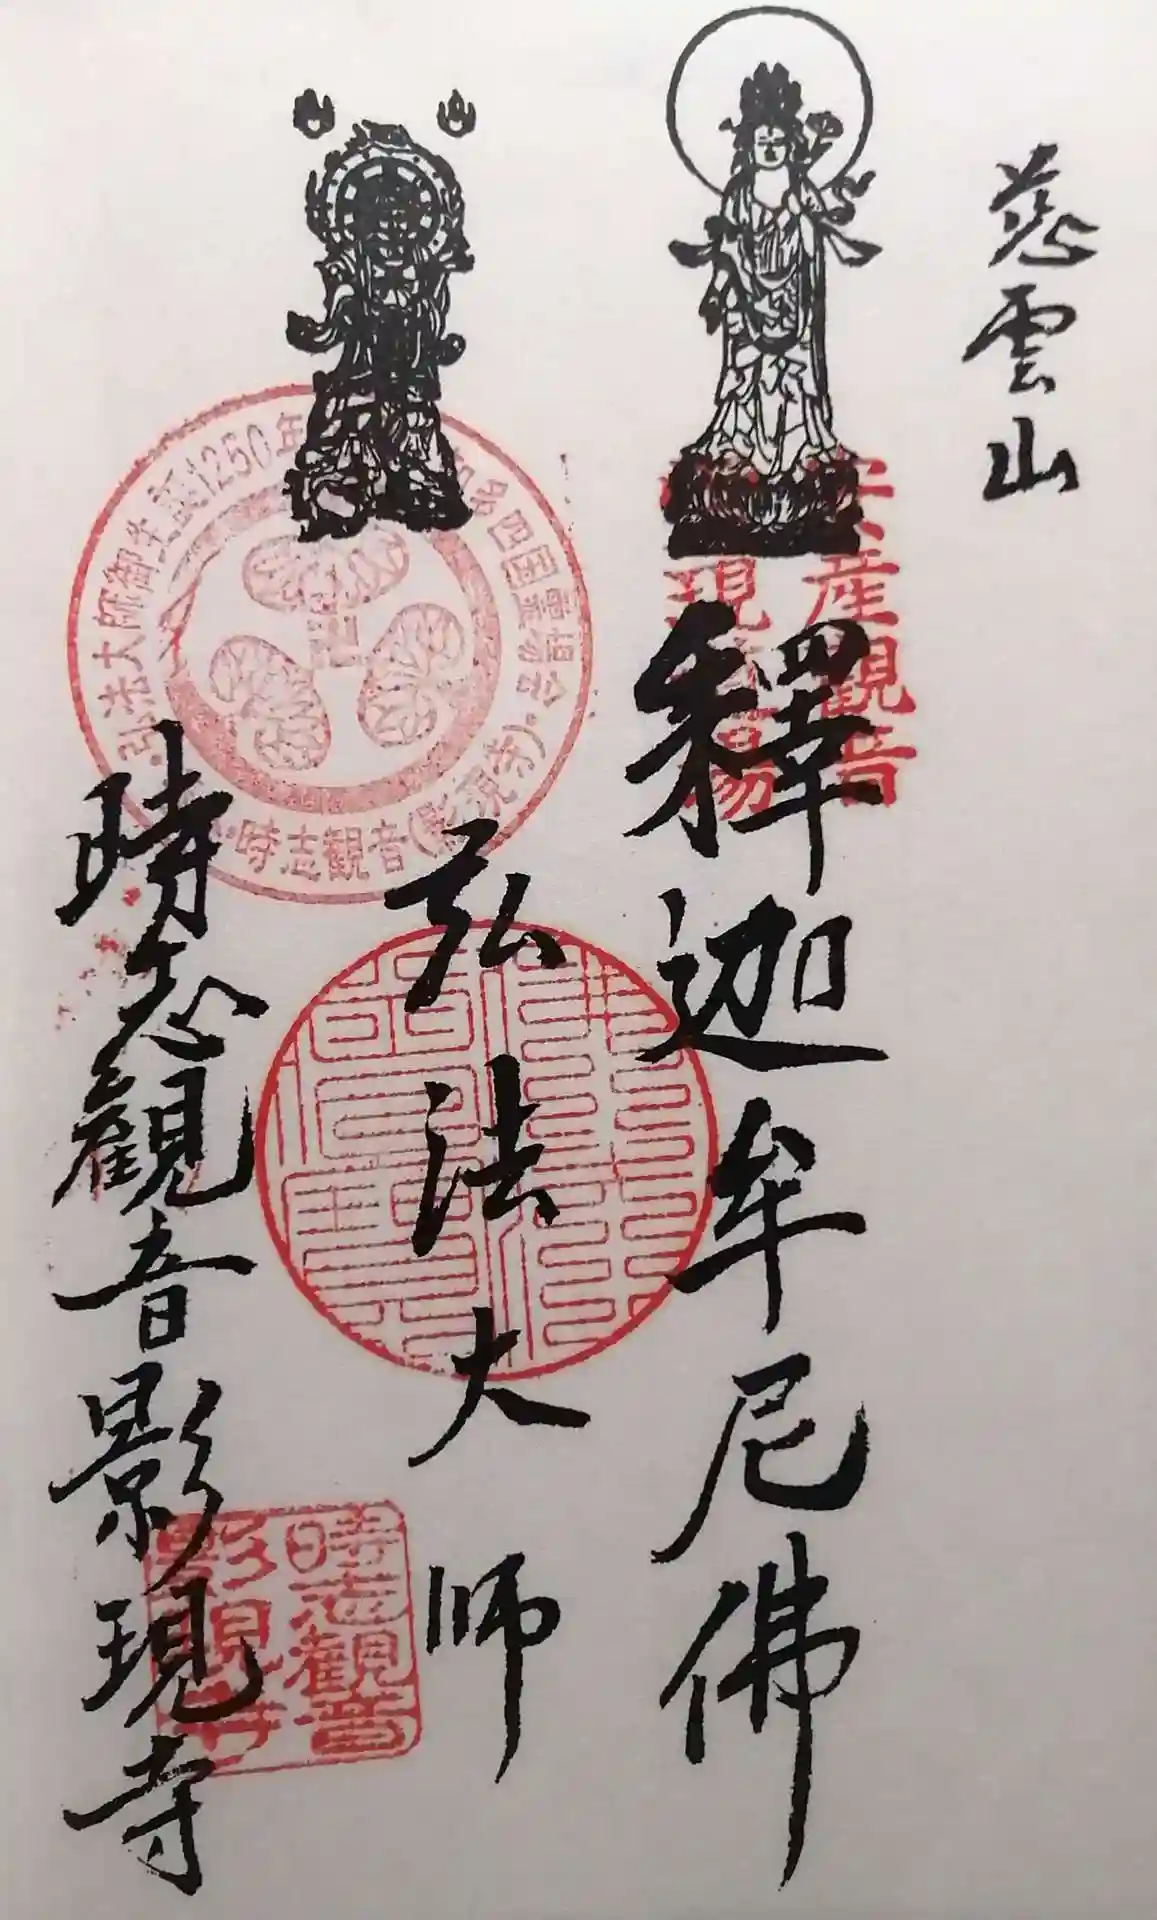 慈雲山
釋迦牟尼佛
弘法大師
時志観音影現寺
安産観音
弘法大師御生誕1250年
四国霊場会
時志観音(影現寺)
時志観音
影現寺